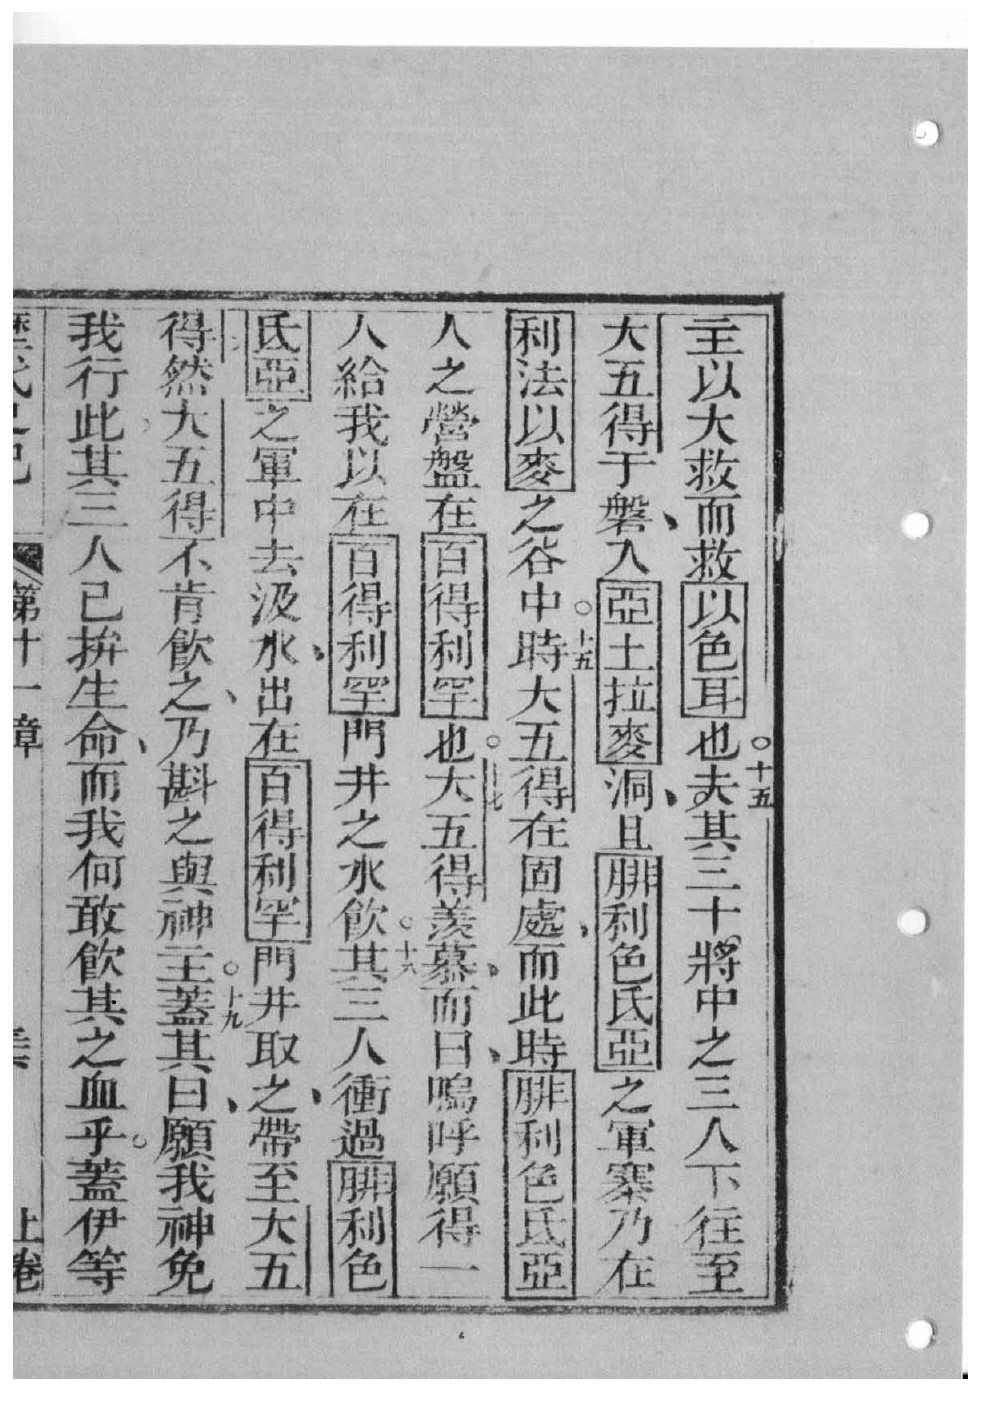 主以大救而救以色耳也○十五夫其三十將中之三人下往至
大五得于磐、入亞土拉麥洞、且腓利色氏亞之軍寨乃在
利法以麥之谷中○十五時大五得在固處、而此時腓利色氏亞
人之營盤在百得利罕也○十七大五得羨慕、而曰、嗚呼願得一
人給我以在百得利罕門井之水飲○十六其三人衝過腓利色
氏亞之軍中去汲水、出在百得利罕門井取之、帶至大五
得然大五得不肯飲之、乃斟之與神主○十九蓋其曰、願我神免
我行此其三人已拚生命、而我何敢飲其之血乎○蓋伊等
歷代史記 第十一章 上卷